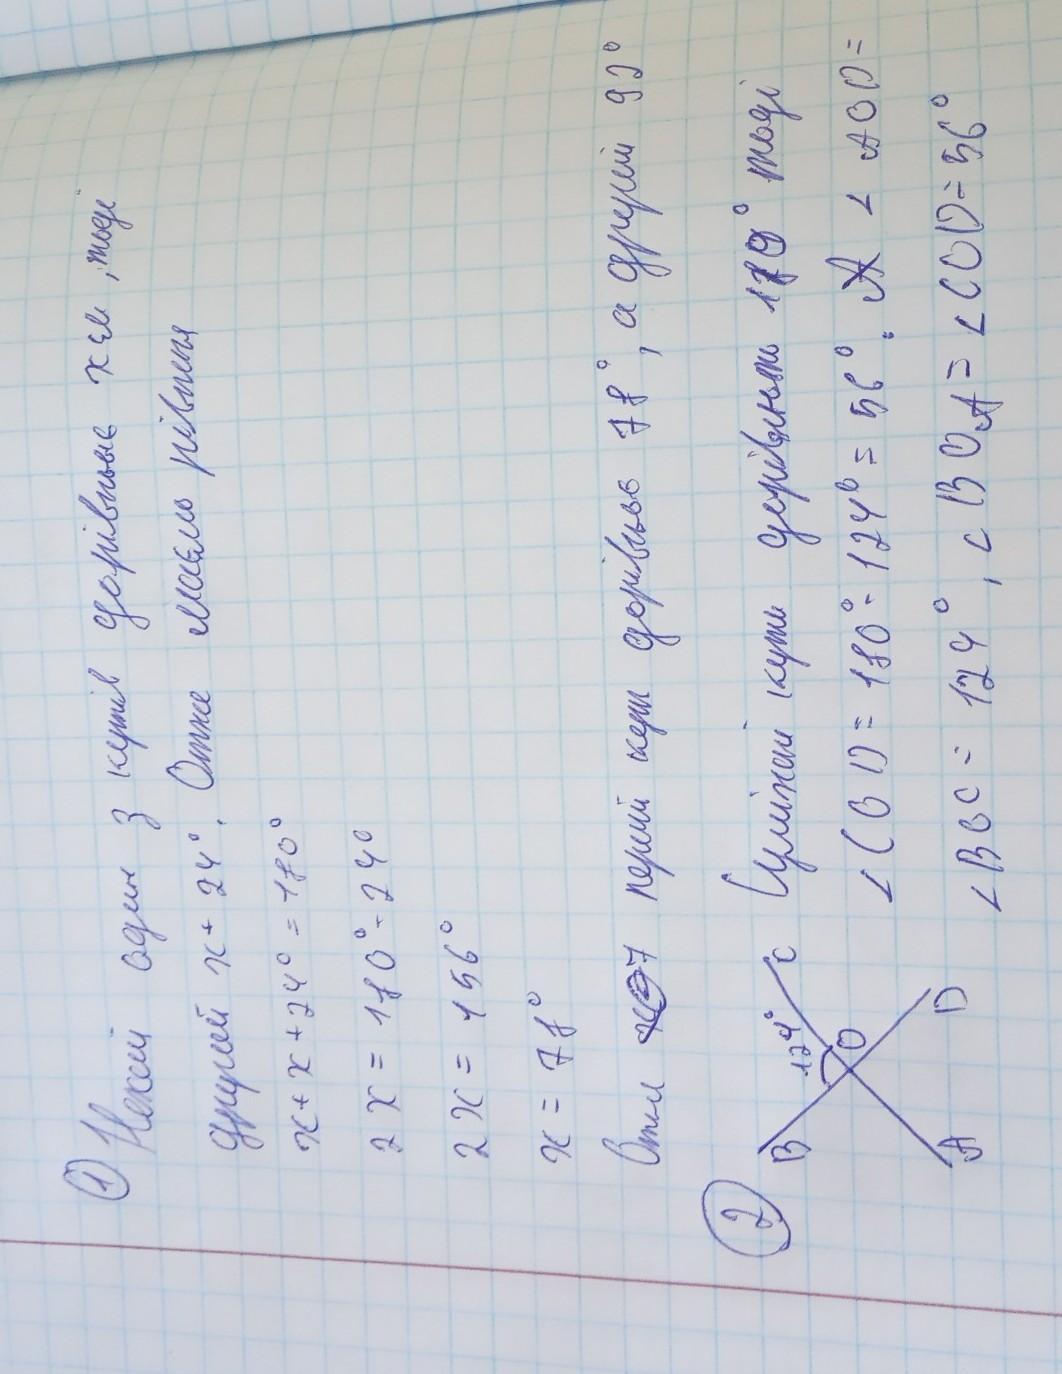 1 Нехай один з кутів дорівнює x см, тоді
другий x + 24°. Отже маємо рівняння
x + x + 24° = 180°
2x = 180° - 24°
2x = 156°
x = 78°
перий кут дорівнює 78°, а другий 92°
2 B 124° C O A D
кути дорівнюють 180° тоді
∠COD = 180° - 124° = 56°. ∠AOD =
∠BOC = 124°, ∠BOA = ∠COD = 56°